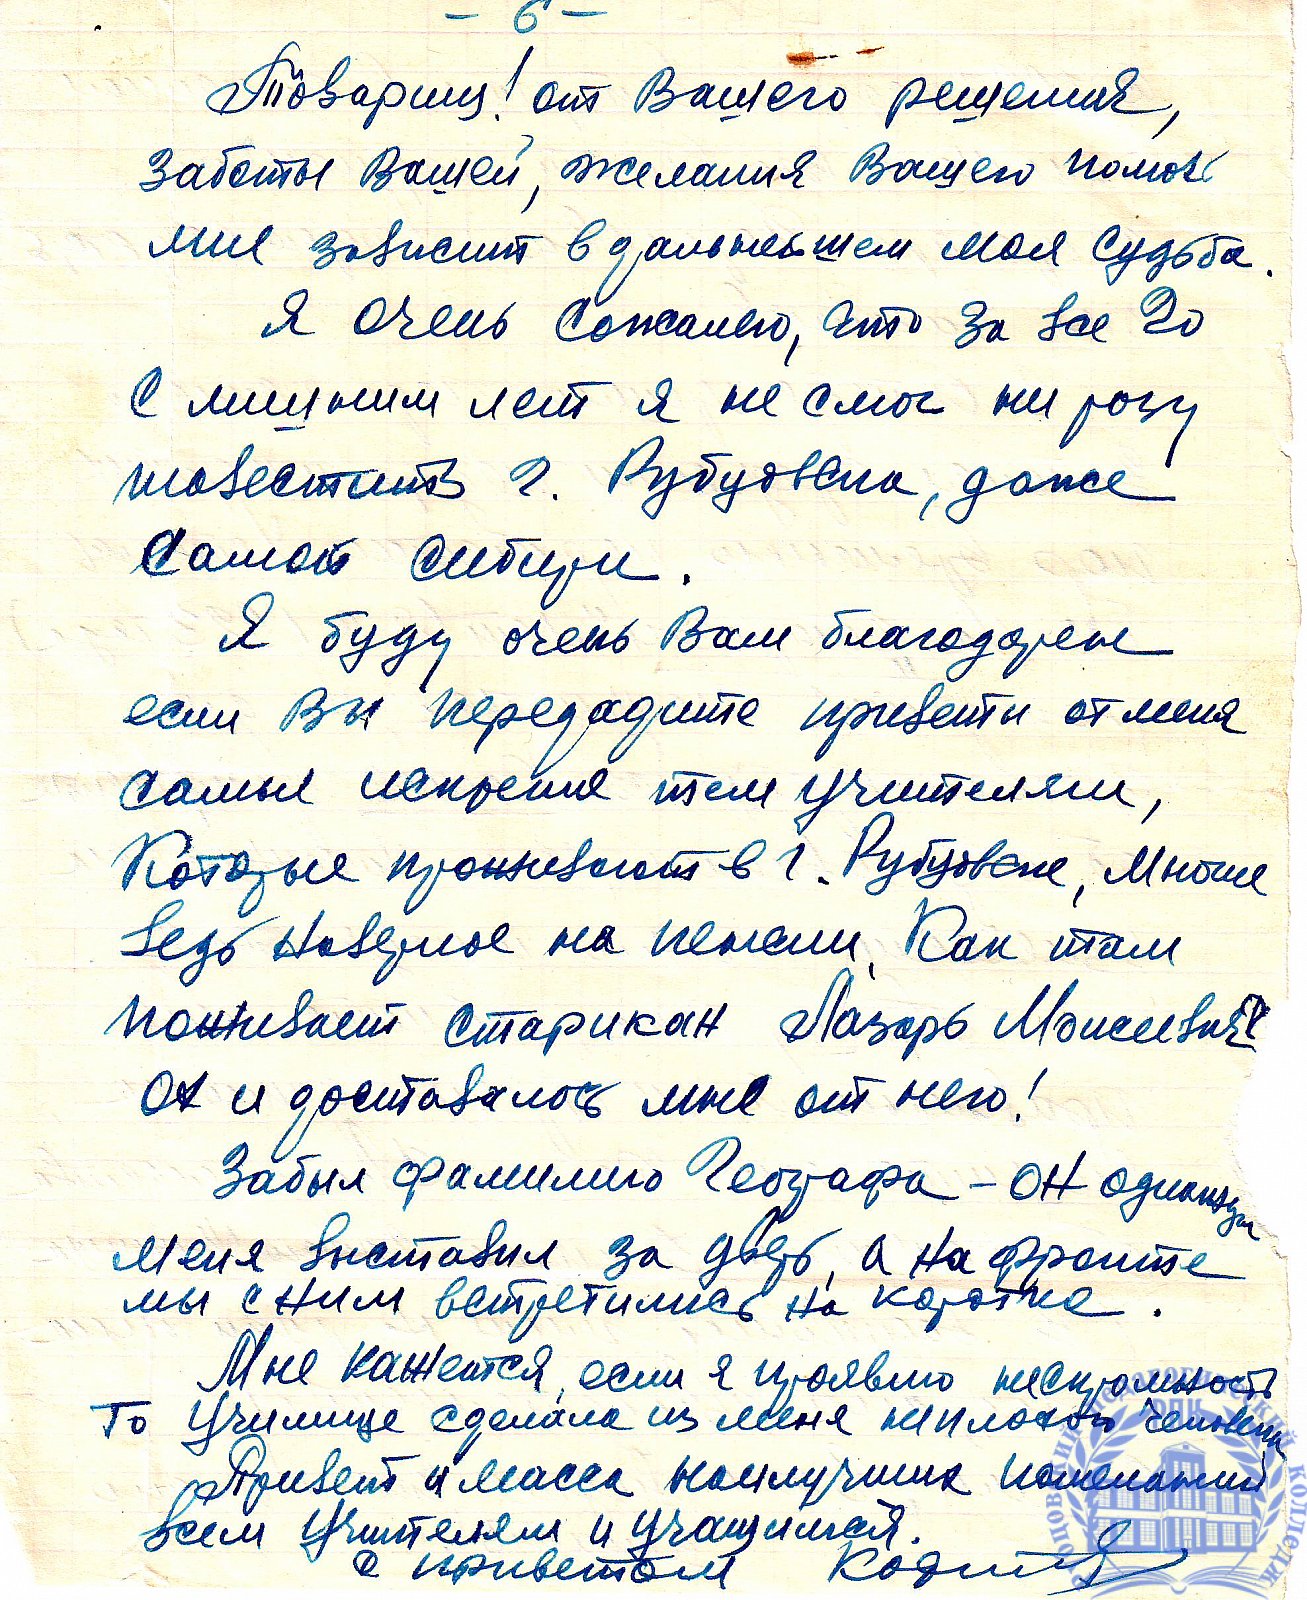 - 6 -
Товарищ! от Вашего решения,
заботы Вашей, желания Вашего помочь
мне зависит в дальнейшем моя судьба.
Я очень сожалею, что за все 20
с лишним лет я не смог ни разу
повестить г. Рубцовска, даже
самой Сибири.
Я буду очень Вам благодарен
если Вы передадите приветы от меня
самые искрение тем учителям,
Которые проживают в г. Рубцовске, Многие
ведь наверное на пенсии, Как там
поживает старикан Лазарь Моисеевич?
Ох и доставалось мне от него!
Забыл фамилию Географа - он однажды
меня выставил за дверь, а на фронте
мы с ним встретились на коротке.
Мне кажется, если я проявлю нескромность
то Училище сделала из меня неплохого человека
Привет и масса наилучших пожеланий
всем Учителям и учащимся.
С приветом
РУБЦОВСКИЙ ПЕДАГОГИЧЕСКИЙ КОЛЛЕДЖ
РПК